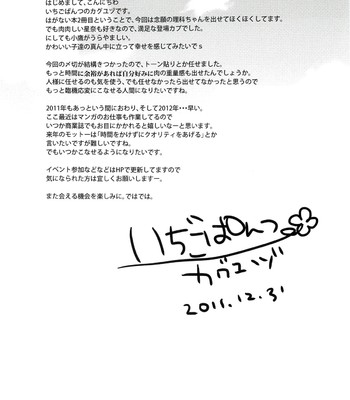 はじめまして、こんにちわ
いちごぱんつのカグユヅです。
はがない本2冊目ということで、今回は念願の理科ちゃんを出せてほくほくしてます。
でも肉肉しい星奈も好きなので、満足な登場カプでした。
にしても小鷹がうらやましい。
かわいい子達の真ん中に立って幸せを感じてみたいでｓ
今回の〆切が結構きつかったので、トーン貼りとか任せました。
もっと時間に余裕があれば自分好みに肉の重量感も出せたんでしょうか。
人様に任せるのも気を使う、でも任せなかったら出せてなかったと思うので
もっと臨機応変にこなせる人間になりたいですね。
2011年もあっという間におわり、そして2012年…早い。
ここ最近はマンガのお仕事も作業してるので
いつか商業誌でもお目にかかれると嬉しいなーと思います。
来年のモットーは「時間をかけずにクオリティをあげる」とか
言いたいですが難しいですね。
でもいつかこなせるようになりたいです。
イベント参加などなどはHPで更新してますので
気になられた方は宜しくお願いしますー。
また会える機会を楽しみに。ではでは。
いちごぱんつ
カグユヅ
2011.12.31